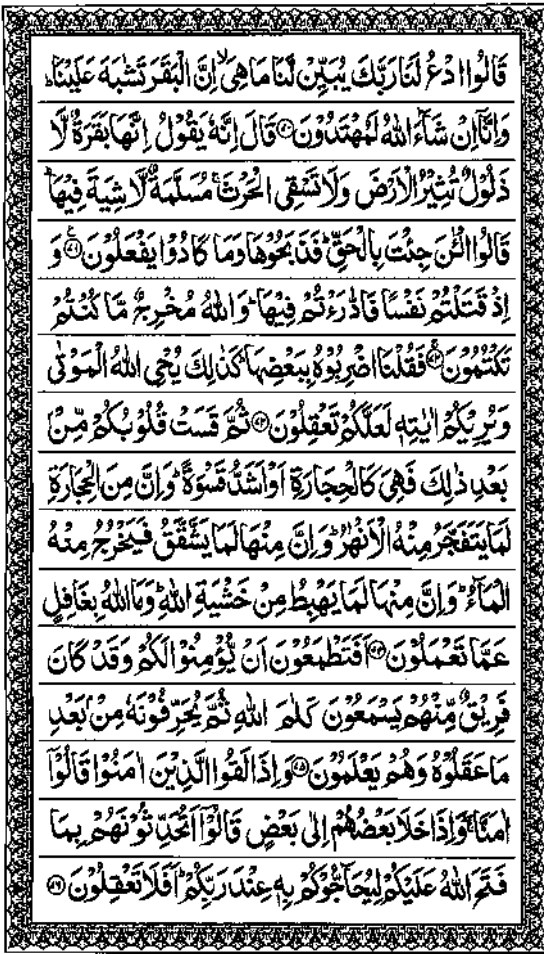 قَالُوا ادْعُ لَنَا رَبَّكَ يُبَيِّنْ لَّنَا مَا هِىَ ۙ اِنَّ الْبَقَرَ تَشٰبَهَ عَلَيْنَا ؕ
وَاِنَّآ اِنْ شَآءَ اللّٰهُ لَمُهْتَدُوْنَ ﴿۷۰﴾ قَالَ اِنَّهٗ يَقُوْلُ اِنَّهَا بَقَرَةٌ لَّا
ذَلُوْلٌ تُثِيْرُ الْاَرْضَ وَلَا تَسْقِى الْحَرْثَ ۚ مُسَلَّمَةٌ لَّا شِيَةَ فِيْهَا ؕ
قَالُوا الْـٰٔنَ جِئْتَ بِالْحَقِّ ؕ فَذَبَحُوْهَا وَمَا كَادُوْا يَفْعَلُوْنَ ﴿۷۱﴾ وَ
اِذْ قَتَلْتُمْ نَفْسًا فَادّٰرَءْتُمْ فِيْهَا ؕ وَاللّٰهُ مُخْرِجٌ مَّا كُنْتُمْ
تَكْتُمُوْنَ ﴿۷۲﴾ فَقُلْنَا اضْرِبُوْهُ بِبَعْضِهَا ؕ كَذٰلِكَ يُحْىِ اللّٰهُ الْمَوْتٰى
وَيُرِيْكُمْ اٰيٰتِهٖ لَعَلَّكُمْ تَعْقِلُوْنَ ﴿۷۳﴾ ثُمَّ قَسَتْ قُلُوْبُكُمْ مِّنْۢ
بَعْدِ ذٰلِكَ فَهِىَ كَالْحِجَارَةِ اَوْ اَشَدُّ قَسْوَةً ؕ وَاِنَّ مِنَ الْحِجَارَةِ
لَمَا يَتَفَجَّرُ مِنْهُ الْاَنْهٰرُ ؕ وَاِنَّ مِنْهَا لَمَا يَشَّقَّقُ فَيَخْرُجُ مِنْهُ
الْمَآءُ ؕ وَاِنَّ مِنْهَا لَمَا يَهْبِطُ مِنْ خَشْيَةِ اللّٰهِ ؕ وَمَا اللّٰهُ بِغَافِلٍ
عَمَّا تَعْمَلُوْنَ ﴿۷۴﴾ اَفَتَطْمَعُوْنَ اَنْ يُّؤْمِنُوْا لَكُمْ وَقَدْ كَانَ
فَرِيْقٌ مِّنْهُمْ يَسْمَعُوْنَ كَلٰمَ اللّٰهِ ثُمَّ يُحَرِّفُوْنَهٗ مِنْۢ بَعْدِ
مَا عَقَلُوْهُ وَهُمْ يَعْلَمُوْنَ ﴿۷۵﴾ وَاِذَا لَقُوا الَّذِيْنَ اٰمَنُوْا قَالُوْٓا
اٰمَنَّا ۚ وَاِذَا خَلَا بَعْضُهُمْ اِلٰى بَعْضٍ قَالُوْٓا اَتُحَدِّثُوْنَهُمْ بِمَا
فَتَحَ اللّٰهُ عَلَيْكُمْ لِيُحَآجُّوْكُمْ بِهٖ عِنْدَ رَبِّكُمْ ؕ اَفَلَا تَعْقِلُوْنَ ﴿۷۶﴾